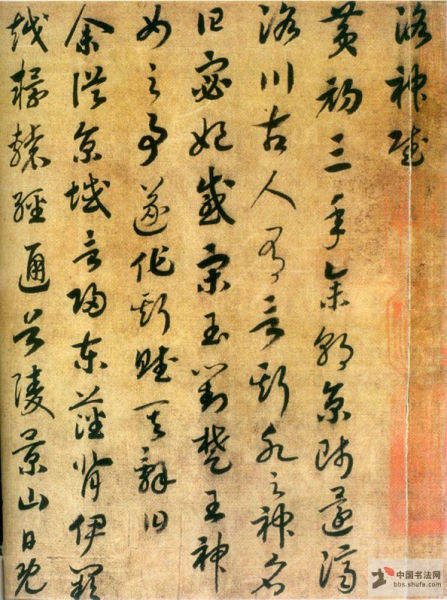 洛神賦
黄初三年余朝京師還濟
洛川古人有言斯水之神名
曰宓妃感宋玉對楚王神
女之事遂作斯賦其辭曰
余從京域言歸東藩背伊闕
越轘轅經通谷陵景山日既
中国书法网
bbs.shufa.com